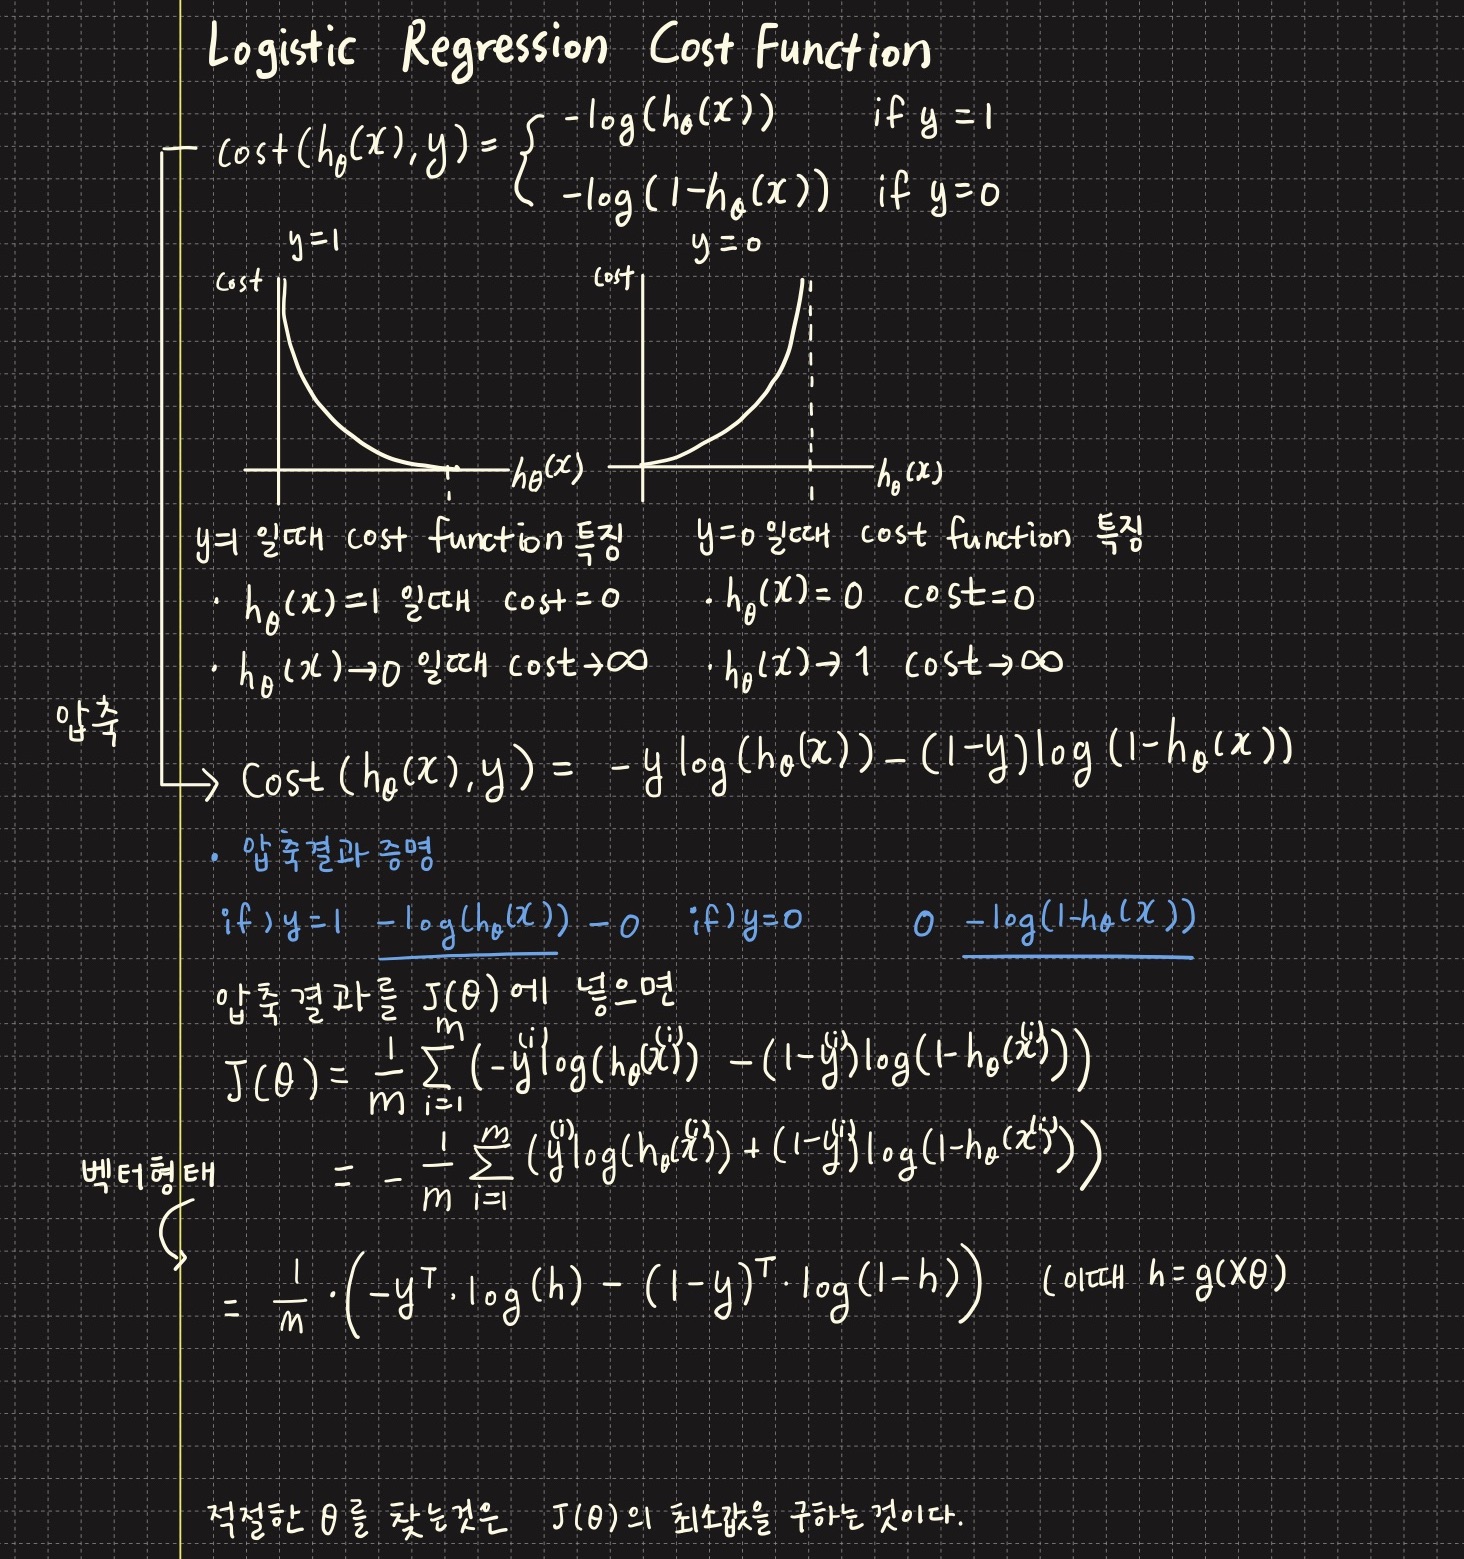 Logistic Regression Cost Function
cost(hθ(x), y) = { -log(hθ(x)) if y = 1
-log(1-hθ(x)) if y=0
y=1
y=0
cost
cost
hθ(x)
hθ(x)
y=1 일때 cost function 특징
· hθ(x)=1 일때 cost=0
· hθ(x)→0 일때 cost→∞
y=0 일때 cost function 특징
· hθ(x)=0 cost=0
· hθ(x)→1 cost→∞
압축
Cost(hθ(x), y) = -y log(hθ(x)) - (1-y)log(1-hθ(x))
· 압축결과 증명
if) y=1 -log(hθ(x)) - 0 if) y=0 0 -log(1-hθ(x))
압축결과를 J(θ)에 넣으면
J(θ) = 1/m ∑_{i=1}^{m} (-y^{(i)}log(hθ(x^{(i)})) - (1-y^{(i)})log(1-hθ(x^{(i)})))
= - 1/m ∑_{i=1}^{m} (y^{(i)}log(hθ(x^{(i)})) + (1-y^{(i)})log(1-hθ(x^{(i)})))
벡터형태
= 1/m · (-y^T · log(h) - (1-y)^T · log(1-h)) (이때 h=g(Xθ)
적절한 θ를 찾는것은 J(θ)의 최소값을 구하는것이다.